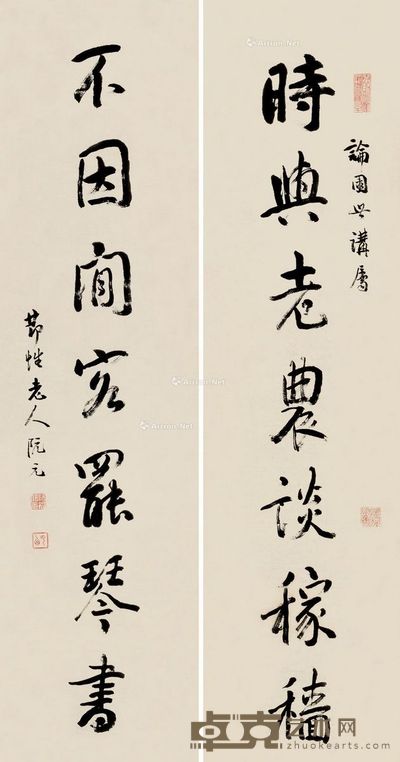 論園世講屬
時與老農談稼穡
不因閒客罷琴書
節性老人阮元
Artron.Net
Artron.Net
Artron.Net
Artron.Net
卓克艺术网
zhuokearts.com